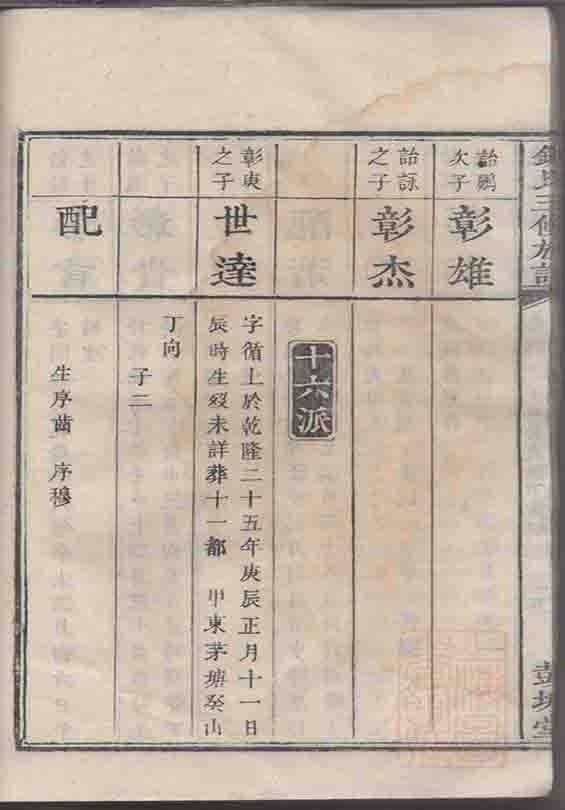 氏三修族譜
詒鵬
次子
彰雄
詒詠
之子
彰杰
十六派
彰庚
之子
世達
字循上於乾隆二十五年庚辰正月十一日
辰時生歿未詳葬十一都 甲東茅塘癸山
丁向
子二
配
生序齒 序穆
堂